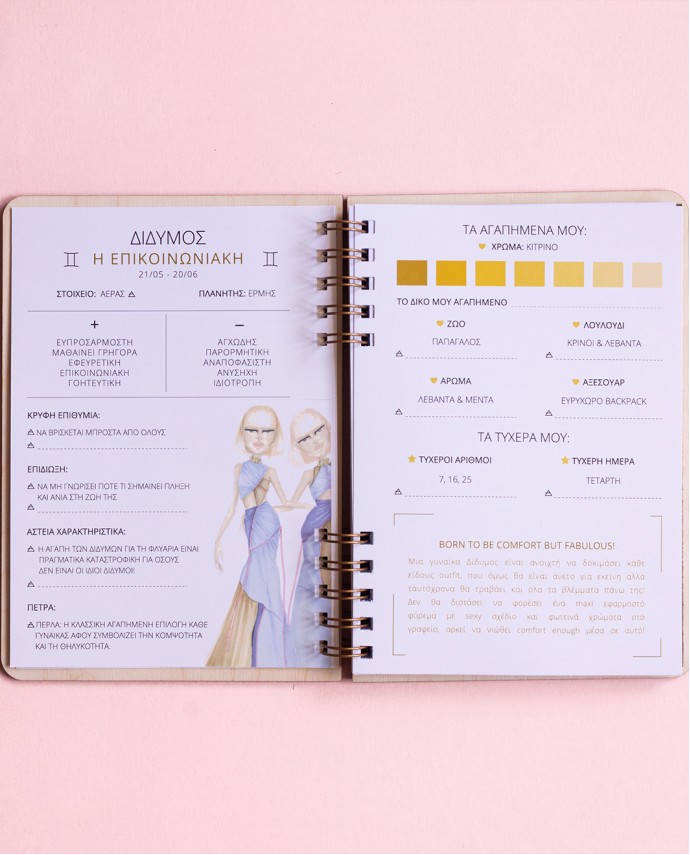 ΔΙΔΥΜΟΣ
Η ΕΠΙΚΟΙΝΩΝΙΑΚΗ
21/05 - 20/06
ΣΤΟΙΧΕΙΟ: ΑΕΡΑΣ
ΠΛΑΝΗΤΗΣ: ΕΡΜΗΣ
+
ΕΥΠΡΟΣΑΡΜΟΣΤΗ
ΜΑΘΑΙΝΕΙ ΓΡΗΓΟΡΑ
ΕΦΕΥΡΕΤΙΚΗ
ΕΠΙΚΟΙΝΩΝΙΑΚΗ
ΓΟΗΤΕΥΤΙΚΗ
–
ΑΓΧΩΔΗΣ
ΠΑΡΟΡΜΗΤΙΚΗ
ΑΝΑΠΟΦΑΣΙΣΤΗ
ΑΝΥΣΗΧΗ
ΙΔΙΟΤΡΟΠΗ
ΚΡΥΦΗ ΕΠΙΘΥΜΙΑ:
ΝΑ ΒΡΙΣΚΕΤΑΙ ΜΠΡΟΣΤΑ ΑΠΟ ΟΛΟΥΣ
ΕΠΙΔΙΩΞΗ:
ΝΑ ΜΗ ΓΝΩΡΙΣΕΙ ΠΟΤΕ ΤΙ ΣΗΜΑΙΝΕΙ ΠΛΗΞΗ
ΚΑΙ ΑΝΙΑ ΣΤΗ ΖΩΗ ΤΗΣ
ΑΣΤΕΙΑ ΧΑΡΑΚΤΗΡΙΣΤΙΚΑ:
Η ΑΓΑΠΗ ΤΩΝ ΔΙΔΥΜΩΝ ΓΙΑ ΤΗ ΦΛΥΑΡΙΑ ΕΙΝΑΙ
ΠΡΑΓΜΑΤΙΚΑ ΚΑΤΑΣΤΡΟΦΙΚΗ ΓΙΑ ΟΣΟΥΣ
ΔΕΝ ΕΙΝΑΙ ΟΙ ΙΔΙΟΙ ΔΙΔΥΜΟΙ!
ΠΕΤΡΑ:
ΠΕΡΛΑ: Η ΚΛΑΣΣΙΚΗ ΑΓΑΠΗΜΕΝΗ ΕΠΙΛΟΓΗ ΚΑΘΕ
ΓΥΝΑΙΚΑΣ ΑΦΟΥ ΣΥΜΒΟΛΙΖΕΙ ΤΗΝ ΚΟΜΨΟΤΗΤΑ
ΚΑΙ ΤΗ ΘΗΛΥΚΟΤΗΤΑ.
ΤΑ ΑΓΑΠΗΜΕΝΑ ΜΟΥ:
ΧΡΩΜΑ: ΚΙΤΡΙΝΟ
ΤΟ ΔΙΚΟ ΜΟΥ ΑΓΑΠΗΜΕΝΟ
ΖΩΟ
ΠΑΠΑΓΑΛΟΣ
ΛΟΥΛΟΥΔΙ
ΚΡΙΝΟΙ & ΛΕΒΑΝΤΑ
ΑΡΩΜΑ
ΛΕΒΑΝΤΑ & ΜΕΝΤΑ
ΑΞΕΣΟΥΑΡ
ΕΥΡΥΧΩΡΟ BACKPACK
ΤΑ ΤΥΧΕΡΑ ΜΟΥ:
ΤΥΧΕΡΟΙ ΑΡΙΘΜΟΙ
7, 16, 25
ΤΥΧΕΡΗ ΗΜΕΡΑ
ΤΕΤΑΡΤΗ
BORN TO BE COMFORT BUT FABULOUS!
Μια γυναίκα Δίδυμος είναι ανοιχτή να δοκιμάσει κάθε
είδους outfit, που όμως θα είναι άνετο για εκείνη αλλά
ταυτόχρονα θα τραβάει και όλα τα βλέμματα πάνω της!
Δεν θα διστάσει να φορέσει ένα maxi εφαρμοστό
φόρεμα με sexy σχέδιο και φωτεινά χρώματα στο
γραφείο, αρκεί να νιώθει comfort enough μέσα σε αυτό!